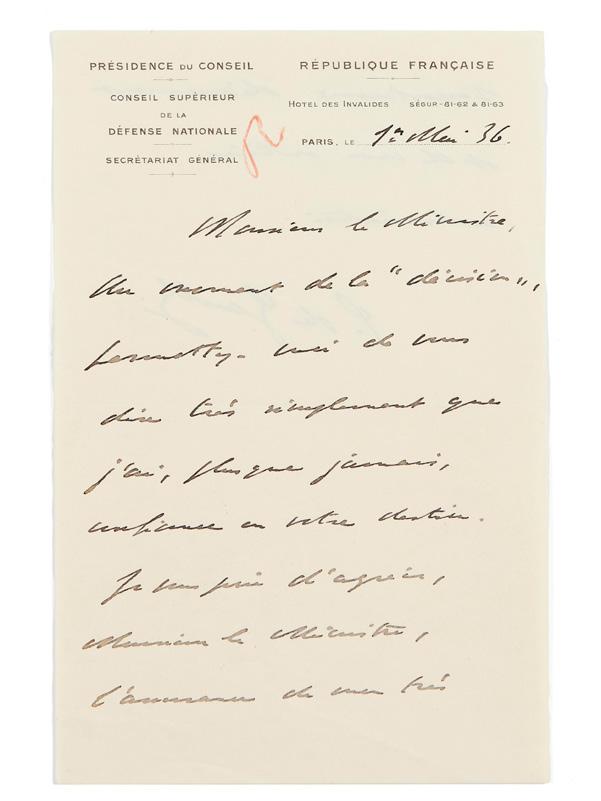 PRÉSIDENCE DU CONSEIL
CONSEIL SUPÉRIEUR
DE LA
DÉFENSE NATIONALE
SECRÉTARIAT GÉNÉRAL
RÉPUBLIQUE FRANÇAISE
HOTEL DES INVALIDES SÉGUR-81-62 & 81-63
PARIS, LE 1er Mai 36.
Monsieur le Ministre,
Au moment de la "décision",
permettez-moi de vous
dire très simplement que
j'ai, plus que jamais,
confiance en votre destin.
Je vous prie d'agréer,
Monsieur le Ministre,
l'assurance de mes très